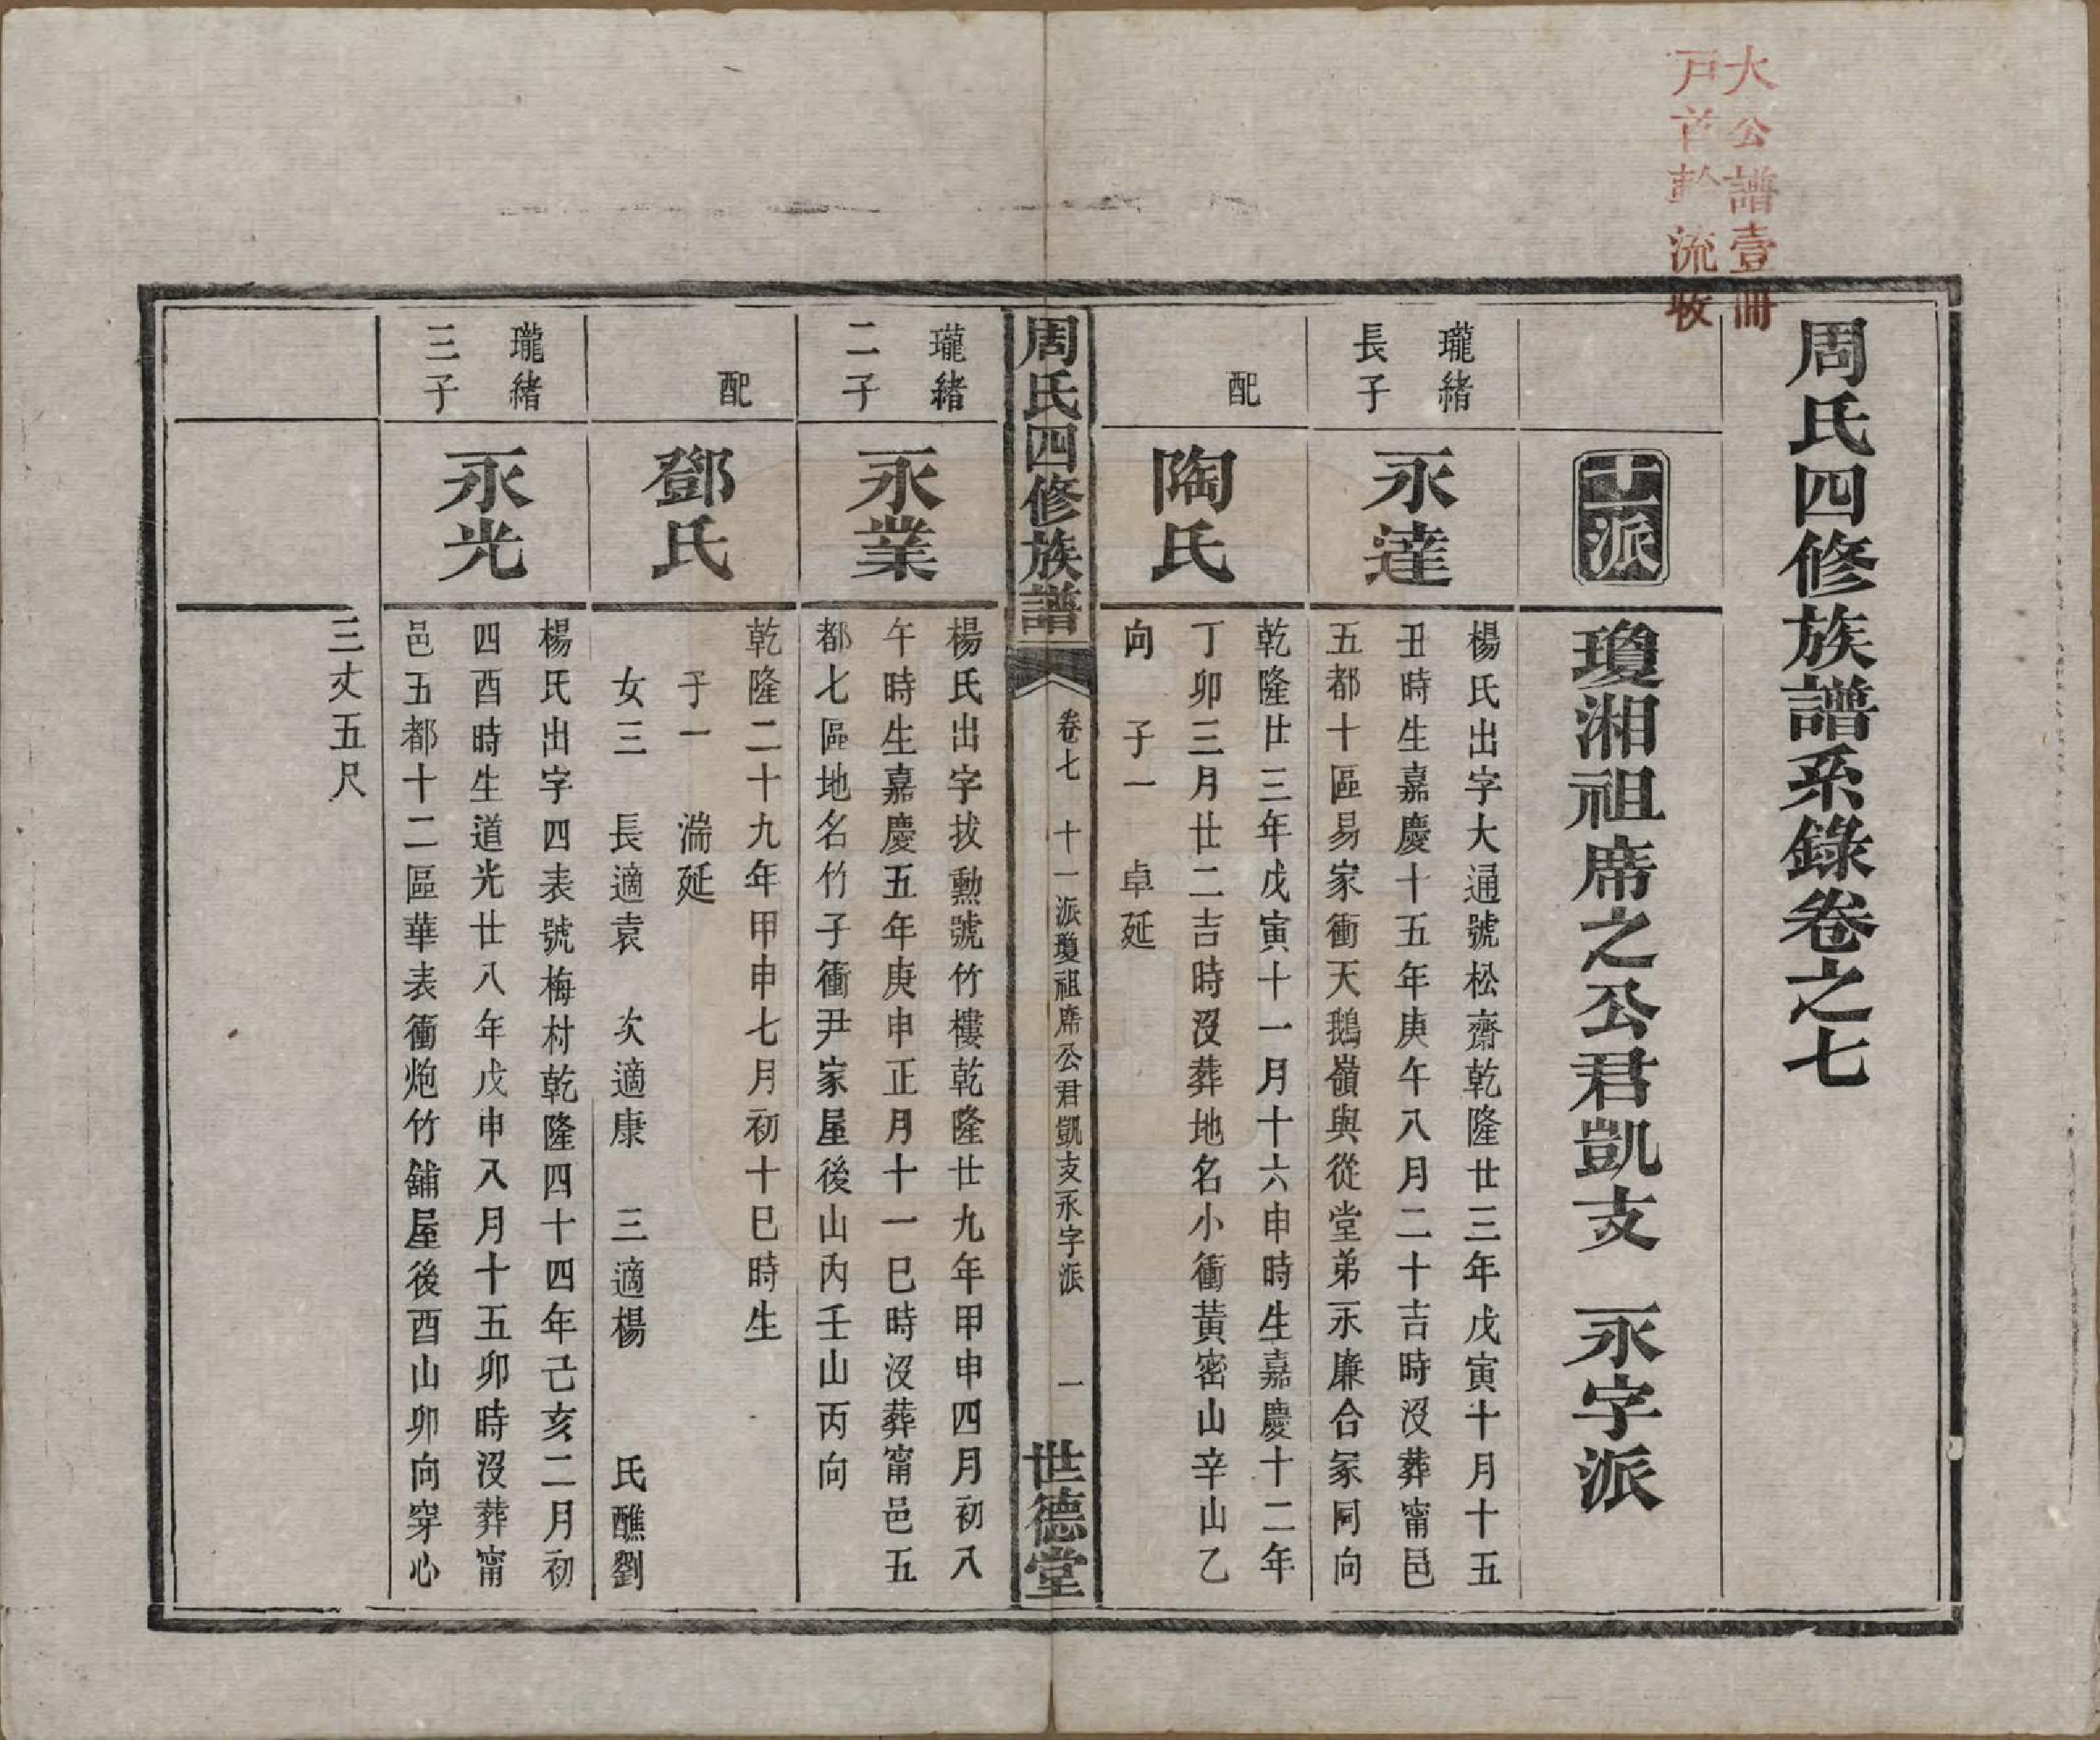 大公譜壹冊
戸首幹流收
周氏四修族譜系錄卷之七
十一派
瓊湘祖席之公君凱支 永字派
瓏緒
長子
永達
楊氏出字大通號松齋乾隆廿三年戊寅十月十五
丑時生嘉慶十五年庚午八月二十吉時沒葬甯邑
五都十區易家衝天鵝嶺與從堂弟永廉合冢同向
配
陶氏
乾隆廿三年戊寅十一月十六申時生嘉慶十二年
丁卯三月廿二吉時沒葬地名小衝黃密山辛山乙
向 子一 卓延
周氏四修族譜 卷七 十一派瓊祖席公君凱支永字派 一 世德堂
瓏緒
二子
永業
楊氏出字拔勲號竹樓乾隆廿九年甲申四月初八
午時生嘉慶五年庚申正月十一巳時沒葬甯邑五
都七區地名竹子衝尹家屋後山內壬山丙向
配
鄧氏
乾隆二十九年甲申七月初十巳時生
子一 湍延
女三 長適袁 次適康 三適楊 氏醮劉
瓏緒
三子
永光
楊氏出字四表號梅村乾隆四十四年己亥二月初
四酉時生道光廿八年戊申八月十五卯時沒葬甯
邑五都十二區華表衝炮竹舖屋後酉山卯向穿心
三丈五尺